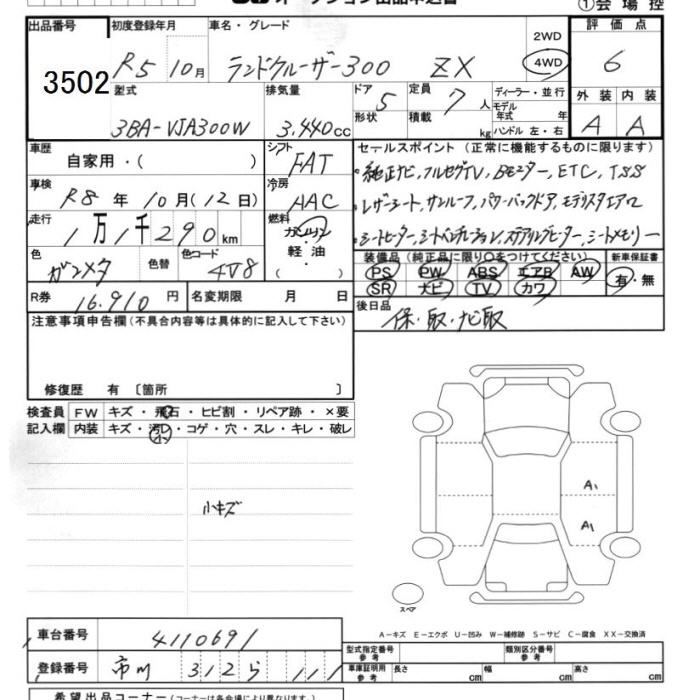 ①会場控
出品番号
3502
初度登録年月
R5 10月
車名・グレード
ランドクルーザー300 ZX
2WD
4WD
評価点
6
型式
3BA-VJA300W
排気量
3,440cc
ドア
5
形状
定員
7人
積載
kg
ディーラー・並行
モデル年式 年
ハンドル 左・右
外装
A
内装
A
車歴
自家用・( )
シフト
FAT
冷房
AAC
車検
R8年10月(12日)
走行
1万1千290km
燃料
ガソリン
軽油
( )
色
ガンメタ
色替
色コード
4V8
R券
16,910円
名変期限 月 日
セールスポイント(正常に機能するものに限ります)
・純正ナビ,フルセグTV,Bモニター,ETC,TSS
・レザーシート,サンルーフ,パワーバックドア,モデリスタエアロ
・シートヒーター,シートベンチレーション,ステアリングヒーター,シートメモリー
装備品(純正品に限り○をつけてください)
PS PW ABS エアB AW
SR ナビ TV カワ
新車保証書
有・無
後日品
保・取・ナビ取
注意事項申告欄(不具合内容等は具体的に記入して下さい)
修復歴 有 〔箇所 〕
検査員記入欄
FW キズ・飛石・ヒビ割・リペア跡・×要
内装 キズ・汚レ・コゲ・穴・スレ・キレ・破レ
小
小キズ
A1
A1
スペア
A-キズ E-エクボ U-凹み W-補修跡 S-サビ C-腐食 XX-交換済
車台番号
4110691
登録番号
市川 312 ら 111
型式指定番号
参考
類別区分番号
参考
車庫証明用
参考
長さ cm
幅 cm
高さ cm
希望出品コーナー(コーナーは各会場により異なります)